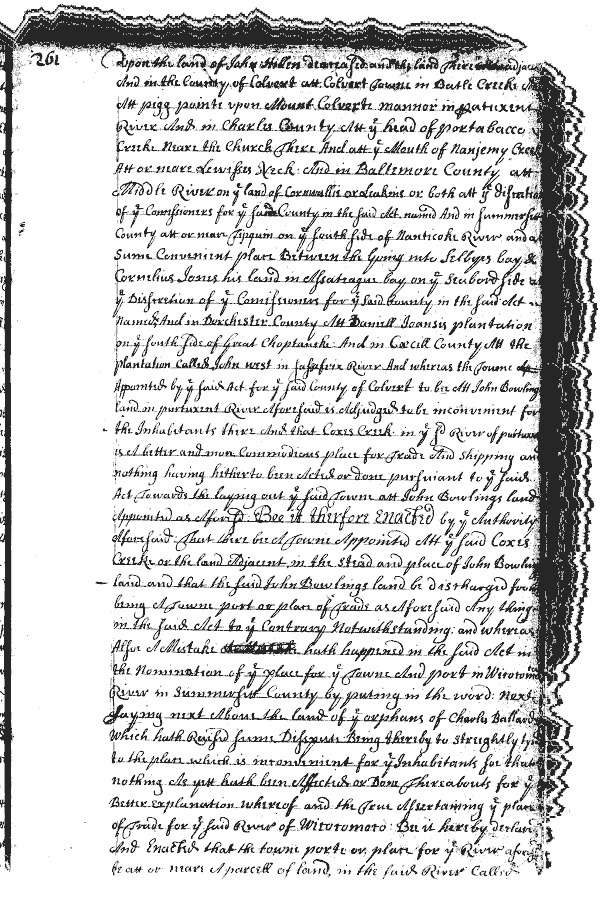 261
Upon the land of John Hillen deceased and the land There adjac
And in the County of Colvert att Colvert Towne in Batle Creeke
Att pigg pointe vpon Mount Colverte mannor in paturent
River And in Charles County Att yͤ head of portabacco
Creeke Neare the Church There And att yͤ Mouth of Nanjemy Creek
Att or mare Lewises Neck: And in Baltemore County att
Middle River on yͤ land of Cornwallis or Leakins or both att yͤ discretion
of yͤ Comissioners for yͤ said County in the said Act named And in Summersett
County att or mare Tipquin on yͤ south side of Nanticoke River and at
Sume Convenient place Between the Going into Selbyes bay &
Cornelius Jones his land in Assateague bay on yͤ Seabord side at
yͤ Disscretion of yͤ Comissioners for yͤ said County in the said Act
named And in Dorchester County Att Daniell Joansis plantation
on yͤ south side of Great Choptanke: And in Cæcill County Att the
plantation Called John west in Sassafrix River And whereas the Towne
Appointed by yͤ said Act for yͤ said County of Colvert to be Att John Bowling
land in paturent River Aforesaid is Adjudged to be inconvenient for
the Inhabitants there And that Coxes Creek in yͤ sᵈ River of paturen
is A better and more Commodious place for Trade And Shipping an
nothing having hitherto been Acted or done pursuiant to yͤ said
Act Towards the laying out yͤ said Towne att John Bowlings land
Appointed as Aforsᵈ: Bee it therfore Enacted by yͤ Authority
Aforesaid: That there bee A Towne Appointed Att yͤ said Coxes
Creeke or the land Adjacent in the stead and place of John Bowlin
land and that the said John Bowlings land be discharged from
being A Towne port or place of Trade as Aforesaid Any thinge
in the said Act to yͤ Contrary Notwithstanding: and whereas
Alsoe A Mistake hath happened in the said Act in
the Nomination of yͤ place for yͤ Towne And port in Wicocom
River in Summersett County by puting in the word: Next
Saying next Above the land of yͤ orphans of Charles Ballard
Which hath Raised Sume Dispute Being thereby to streightly ty
to the place which is inconvenient for yͤ Inhabitants soe that
nothing As yett hath been Affected or Done Thereabouts for yͤ
Better explanation whereof and the True Assertaining yͤ place
of Trade for yͤ said River of Wicocomoco: Be it hereby declare
And Enacted that the towne porte or place for yͤ River afores
be att or neare A parcell of land, in the said River Called